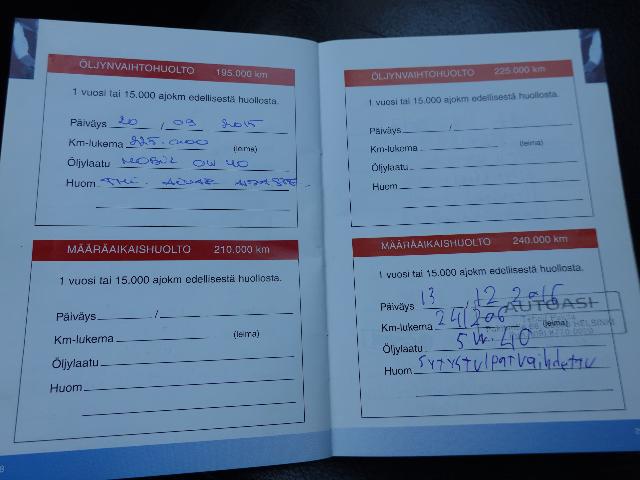 ÖLJYNVAIHTOHUOLTO 195.000 km
1 vuosi tai 15.000 ajokm edellisestä huollosta.
Päiväys 20 / 09 2015
Km-lukema 225.000 (leima)
Öljylaatu MOBIL 0W 40
Huom
MÄÄRÄAIKAISHUOLTO 210.000 km
1 vuosi tai 15.000 ajokm edellisestä huollosta.
Päiväys /
Km-lukema (leima)
Öljylaatu
Huom
8
ÖLJYNVAIHTOHUOLTO 225.000 km
1 vuosi tai 15.000 ajokm edellisestä huollosta.
Päiväys /
Km-lukema (leima)
Öljylaatu
Huom
MÄÄRÄAIKAISHUOLTO 240.000 km
1 vuosi tai 15.000 ajokm edellisestä huollosta.
Päiväys 13 / 12 2016
AUTOASI
Km-lukema 241206 (leima)
HELSINKI
Öljylaatu 5W.40
Huom sytystulpat vaihdettu